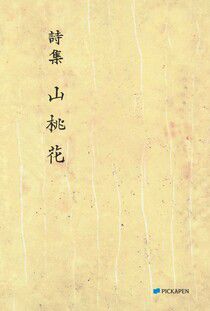 詩集 山桃花
PICKAPEN